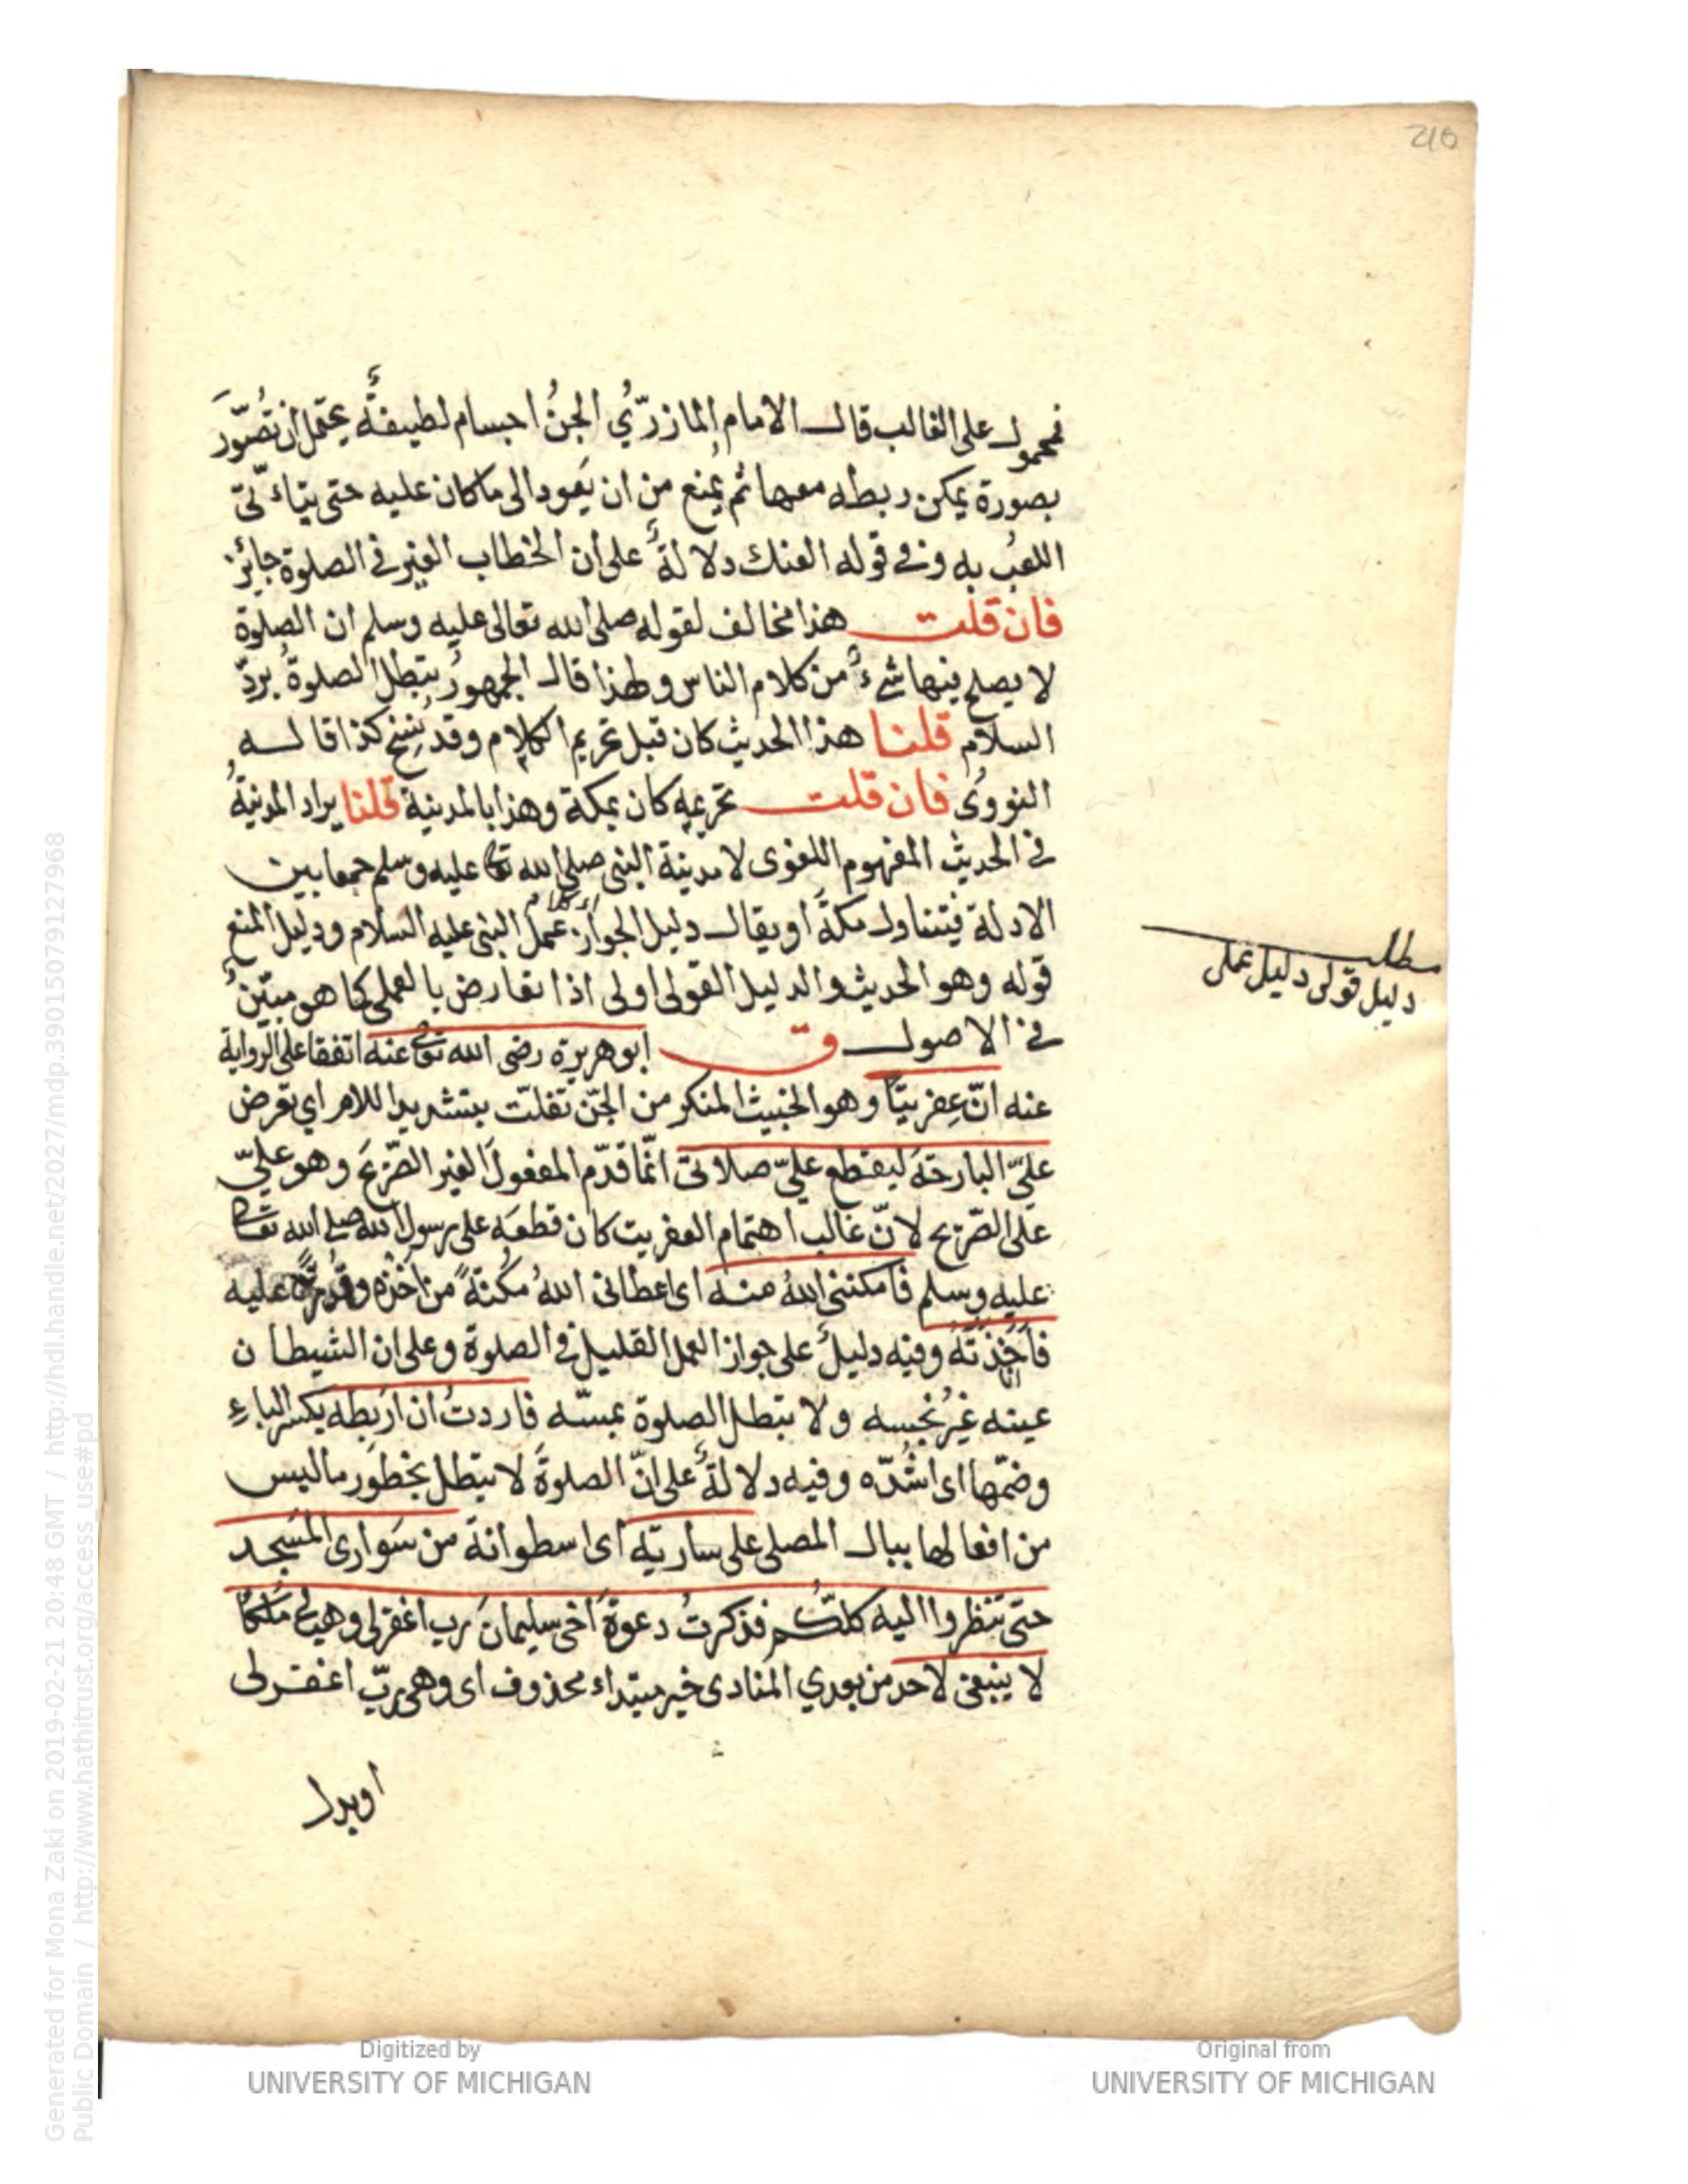 210
فمحمول على الغالب قال الامام المازرّيُ الجنُ اجسام لطيفةٌ يحتمل ان تصُوّرَ
بصورة يمكن ربطه معها ثم يُمنع من ان يَعود الى ما كان عليه حتى يتاءتّى
اللعب به وفي قوله العنك دلالةٌ على ان الخطاب الغير في الصلوة جائز
فان قلت هذا مخالف لقوله صلى الله تعالى عليه وسلم ان الصلوة
لا يصلح فيها شئٌ من كلام الناس ولهذا قال الجمهورُ يبطل الصلوةُ بردّ
السلام قلنا هذا الحديث كان قبل تحريم الكلام وقد نُسخ كذا قاله
النووى فان قلت تحريمه كان بمكة وهذا بالمدينة قلنا يراد المدينةُ
في الحديث المفهوم اللغوى لا مدينة النبى صلى الله تعا عليه وسلم جمعا بين
الادلة فيتناول مكةَ او يقال دليل الجواز عمل النبى عليه السلام ودليل المنع
مطلب
دليل قولى دليل عملى
قوله وهو الحديث والدليل القولى اولى اذا تعارض بالعملى كما هو مبيّنٌ
في الاصول ق ابو هريرة رضى الله تعا عنه اتفقا على الرواية
عنه انّ عِفريتًا وهو الخبيث المنكر من الجنّ تفلّت بتشديد اللام اي تعرض
عليّ البارحَةَ ليقطع عليّ صلاتى انّما قدّم المفعولَ الغير الصّريحَ وهو عليّ
على الصّريح لانّ غالب اهتمام العفريت كان قطعَه على رسول الله صلى الله تعا
عليه وسلم فامكننى اللهُ منه اى اعطانى اللهُ مكُنةً من اخذه عليه
فاَخَذتُه وفيه دليلٌ على جواز العمل القليل في الصلوة وعلى ان الشيطان
عينه غيرُ نجسه ولا يبطل الصلوة بمسّه فاردتُ ان اربَطه بكسر الباءِ
وضمّها اى اشُدّه وفيه دلالةٌ على انّ الصلوةَ لا يبطل بخطور ما ليس
من افعالها ببال المصلى على ساريَةٍ اى اسطوانة من سَوارى المَسجد
حتى تنظروا اليه كلكُّم فذكرتُ دعوةَ اخى سليمانَ رب اغفرلى وهب لى مُلكًا
لا ينبغى لاحد من بعدي المنادى خبر مبتداء محذوف اى وهى ربّ اغفرلى
او بدل
Generated for Mona Zaki on 2019-02-21 20:48 GMT / http://hdl.handle.net/2027/mdp.39015079127968
Public Domain / http://www.hathitrust.org/access_use#pd
Digitized by
UNIVERSITY OF MICHIGAN
Original from
UNIVERSITY OF MICHIGAN